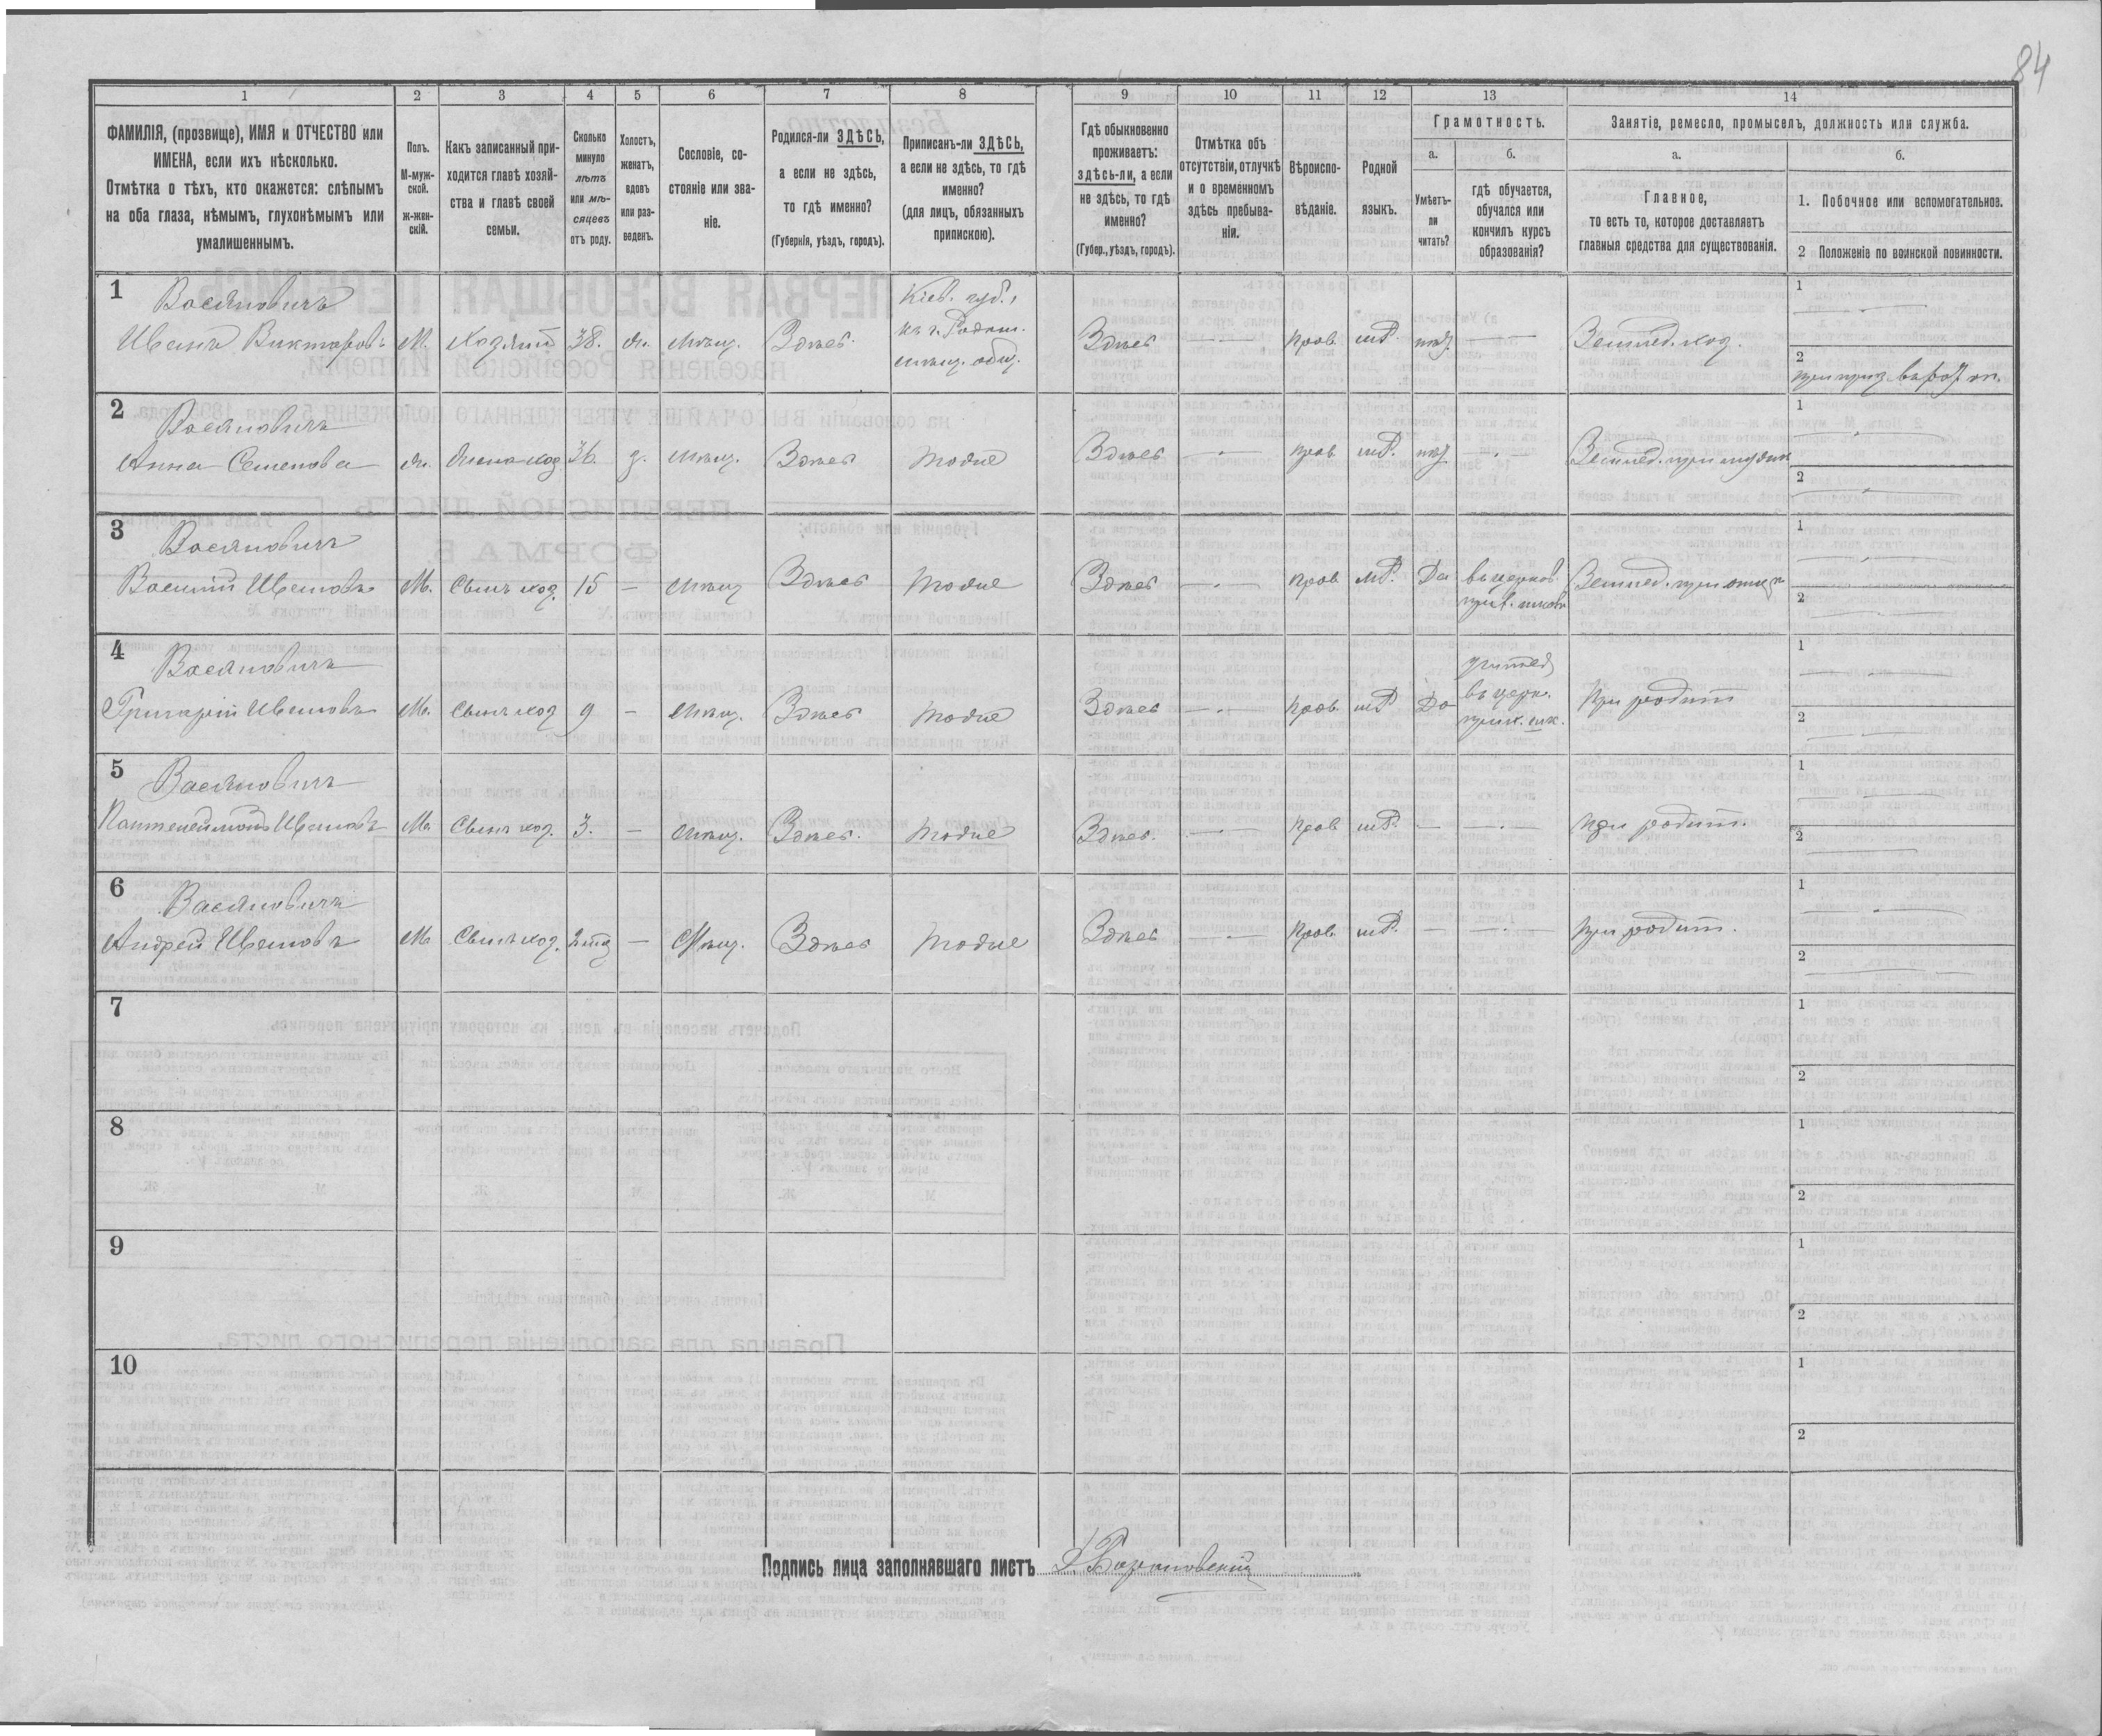 84
1 2 3 4 5 6 7 8 9 10 11 12 13 14
ФАМИЛІЯ, (прозвище), ИМЯ и ОТЧЕСТВО или
ИМЕНА, если ихъ нѣсколько.
Отмѣтка о тѣхъ, кто окажется: слѣпымъ
на оба глаза, нѣмымъ, глухонѣмымъ или
умалишеннымъ.
Полъ.
М-муж-
ской.
ж-жен-
скій.
Какъ записанный при-
ходится главѣ хозяй-
ства и главѣ своей
семьи.
Сколько
минуло
лѣтъ
или мѣ-
сяцевъ
отъ роду.
Холостъ,
женатъ,
вдовъ
или раз-
веденъ.
Сословіе, со-
стояніе или зва-
ніе.
Родился-ли ЗДѢСЬ,
а если не здѣсь,
то гдѣ именно?
(Губернія, уѣздъ, городъ).
Приписанъ-ли ЗДѢСЬ,
а если не здѣсь, то гдѣ
именно?
(для лицъ, обязанныхъ
припискою).
Гдѣ обыкновенно
проживаетъ:
здѣсь-ли, а если
не здѣсь, то гдѣ
именно?
(Губер., уѣздъ, городъ).
Отмѣтка объ
отсутствіи, отлучкѣ
и о временномъ
здѣсь пребыва-
ніи.
Вѣроиспо-
вѣданіе.
Родной
языкъ.
Грамотность.
а.
Умѣетъ-
ли
читать?
б.
гдѣ обучается,
обучался или
кончилъ курсъ
образованія?
Занятіе, ремесло, промыселъ, должность или служба.
а.
Главное,
то есть то, которое доставляетъ
главныя средства для существованія.
б.
1. Побочное или вспомогательное.
2 Положеніе по воинской повинности.
1 Васяновичъ Кіев. губ., 1
Иванъ Викторовъ М. Хозяинъ 38. ж. Мѣщ. Здѣсь. Здѣсь Прав. Землед. хоз.
мѣщ. общ. 2
2 Васяновичъ 1
Анна Семенова ж. Жена хоз 36. з. Мѣщ. Здѣсь Тоже Здѣсь Прав. Землед. при
2
3 Васяновичъ 1
Василій Ивановъ М. Сынъ хоз. 15 – Мѣщ Здѣсь Тоже Здѣсь Прав. Да въ церков. Землед. при отцѣ
2
4 Васяновичъ 1
Григорій Ивановъ М. Сынъ хоз 9 – Мѣщ. Здѣсь Тоже Здѣсь Прав. Да въ церк. При родит
прих. шк. 2
5 Васяновичъ 1
Пантелеймонъ Ивановъ М. Сынъ хоз. 3. – Мѣщ. Здѣсь. Тоже Здѣсь. Прав – при родит.
2
6 Васяновичъ 1
Андрей Ивановъ М Сынъ хоз. – Мѣщ. Здѣсь Тоже Здѣсь Прав. – При родит.
2
7 1
2
8 1
2
9 1
2
10 1
2
Подпись лица заполнявшаго листъ Барановскій